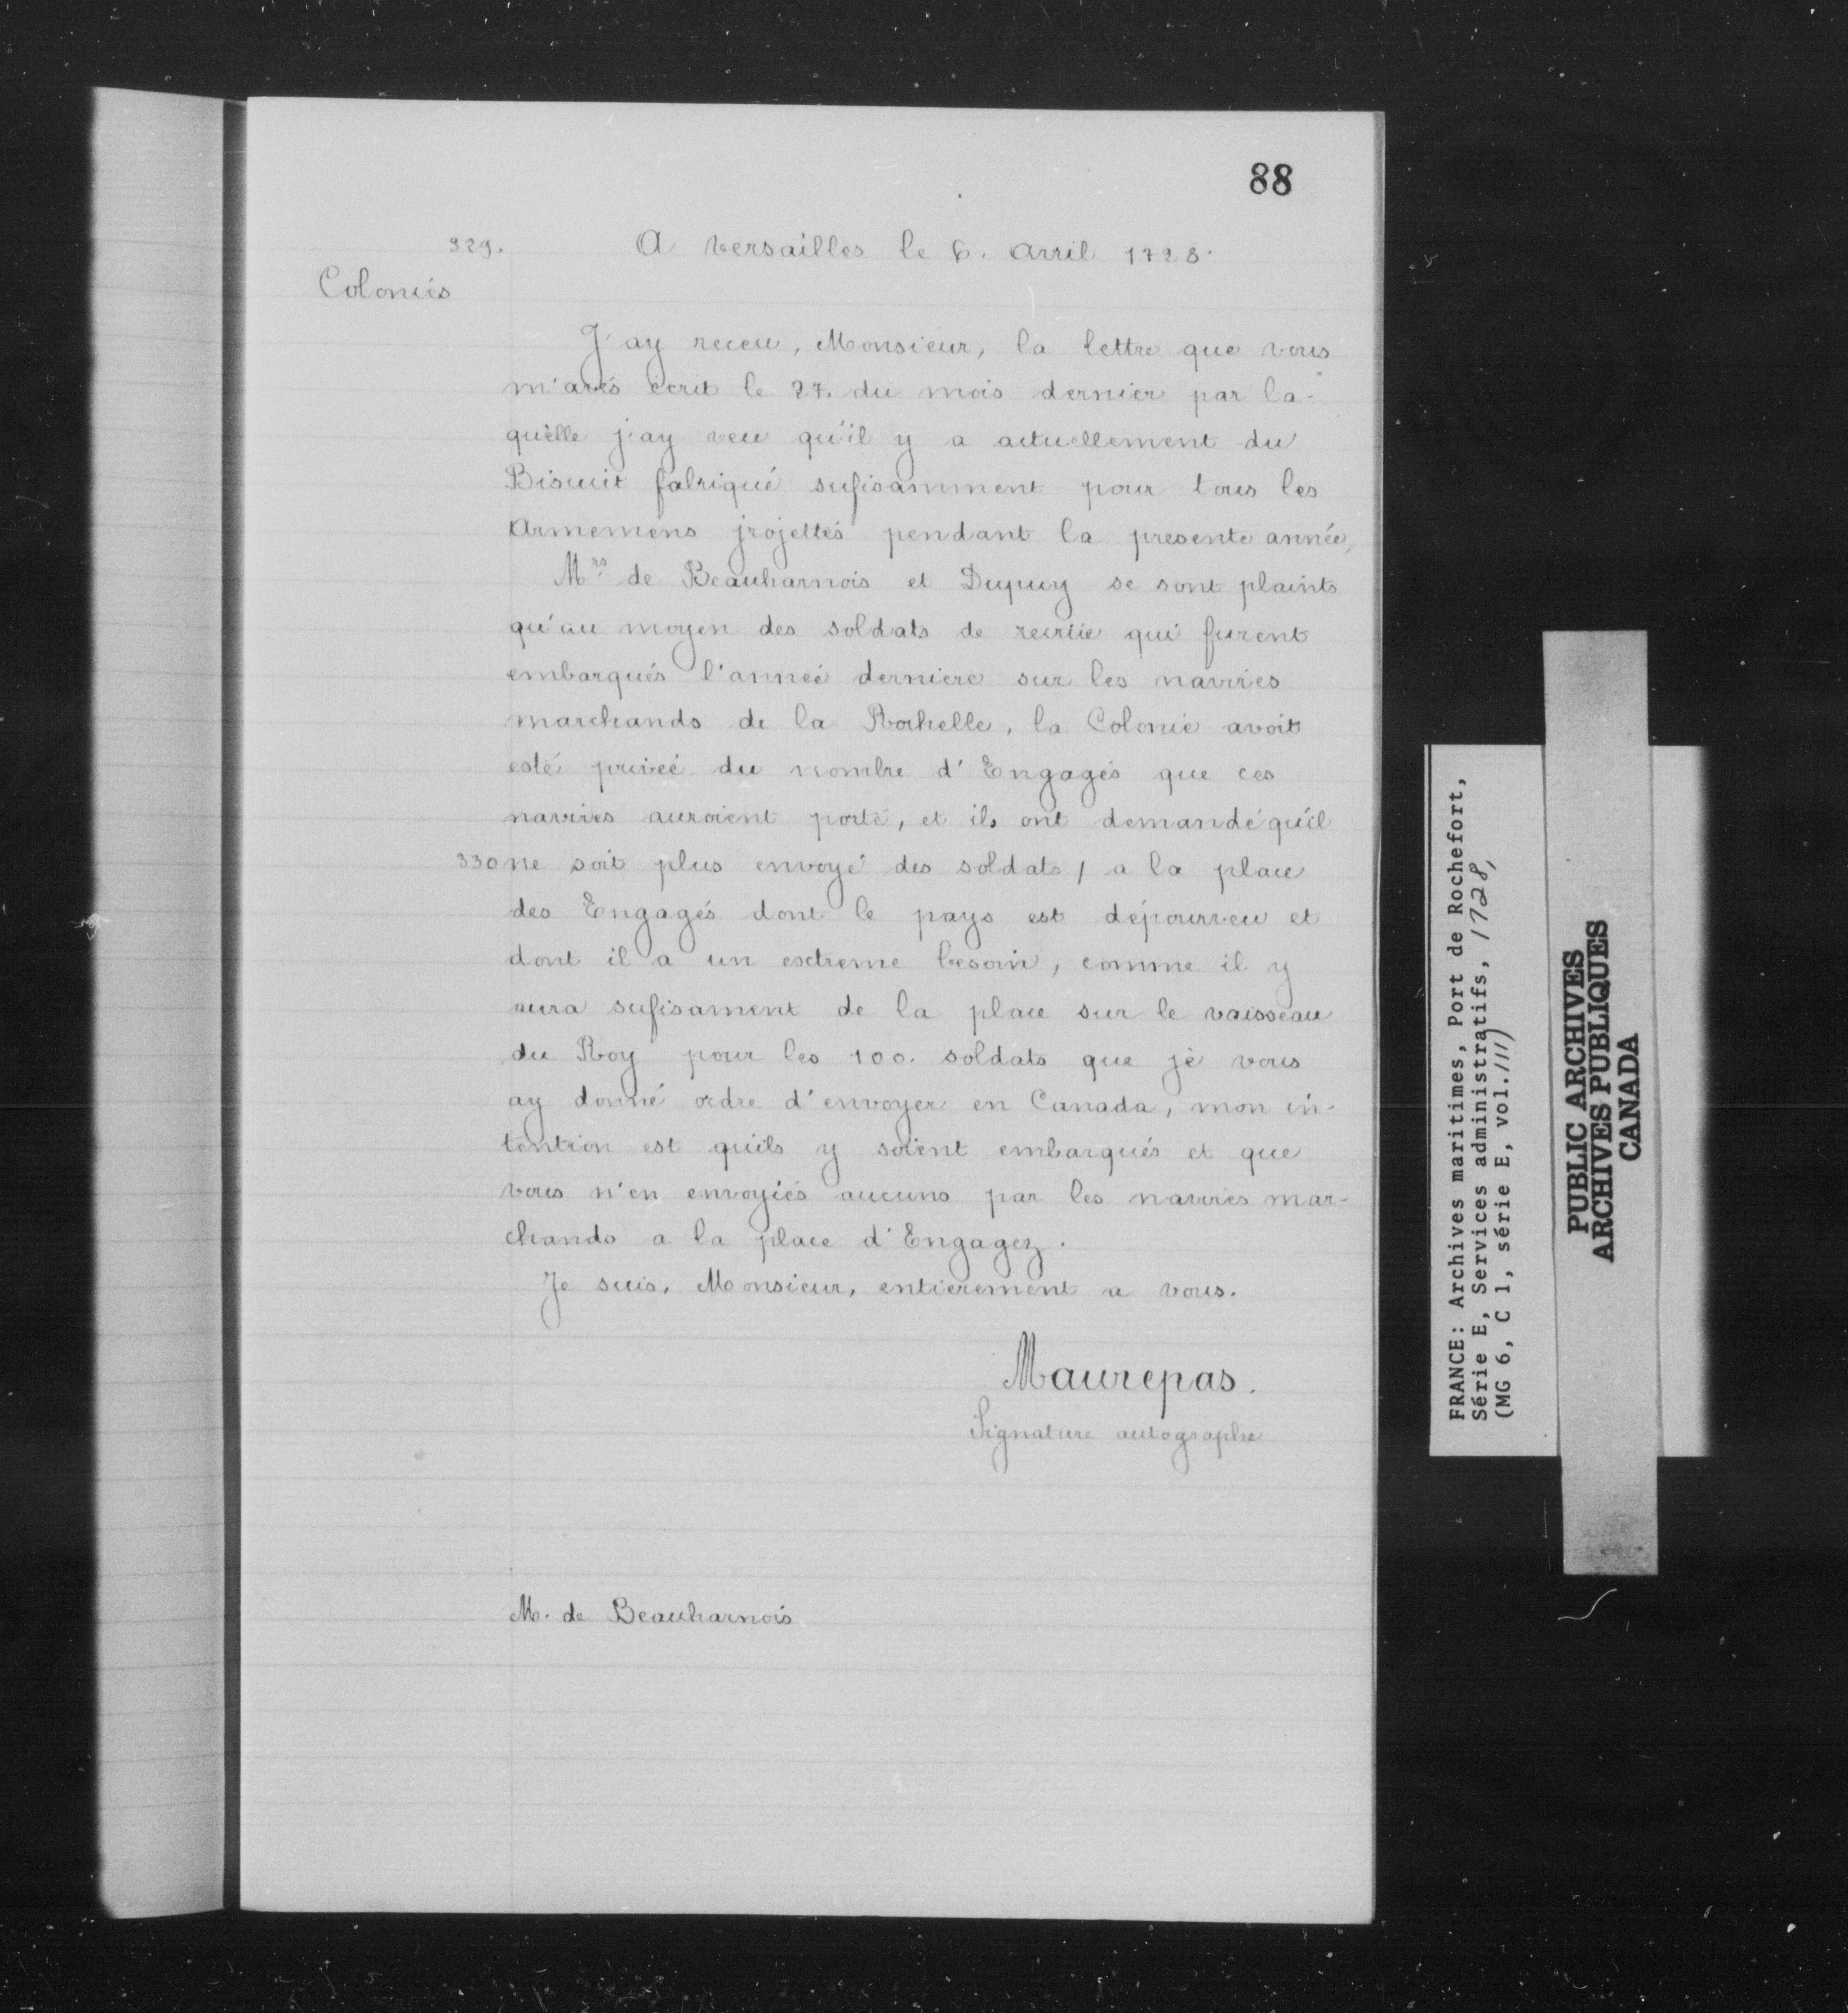 88
329.
A versailles le 6. avril 1728.
Colonies
J'ay receu, Monsieur, la lettre que vous
m'avés écrit le 27. du mois dernier par la-
quelle j'ay veu qu'il y a actuellement du
Biscuit fabriqué sufisamment pour tous les
armemens projettés pendant la presente année,
Mrs de Beauharnois et Dupuy se sont plaints
qu'au moyen des soldats de recrüe qui furent
embarqués l'année derniere sur les navires
marchands de la Rochelle, la Colonie avoit
esté privée du nombre d'Engagés que ces
navires auroient porté, et ils ont demandé qu'il
330 ne soit plus envoyé des soldats / a la place
des Engagés dont le pays est dépourveu et
dont il a un extreme besoin, comme il y
aura sufisament de la place sur le vaisseau
du Roy pour les 100. soldats que je vous
ay donné ordre d'envoyer en Canada, mon in-
tention est quils y soient embarqués et que
vous n'en envoyiés aucuns par les navires mar-
chands a la place d'Engagez.
Je suis, Monsieur, entierement a vous.
Maurepas.
Signature autographe
M. de Beauharnois
FRANCE: Archives maritimes, Port de Rochefort,
Série E, Services administratifs, 1728,
(MG 6, C 1, série E, vol. 111)
PUBLIC ARCHIVES
ARCHIVES PUBLIQUES
CANADA